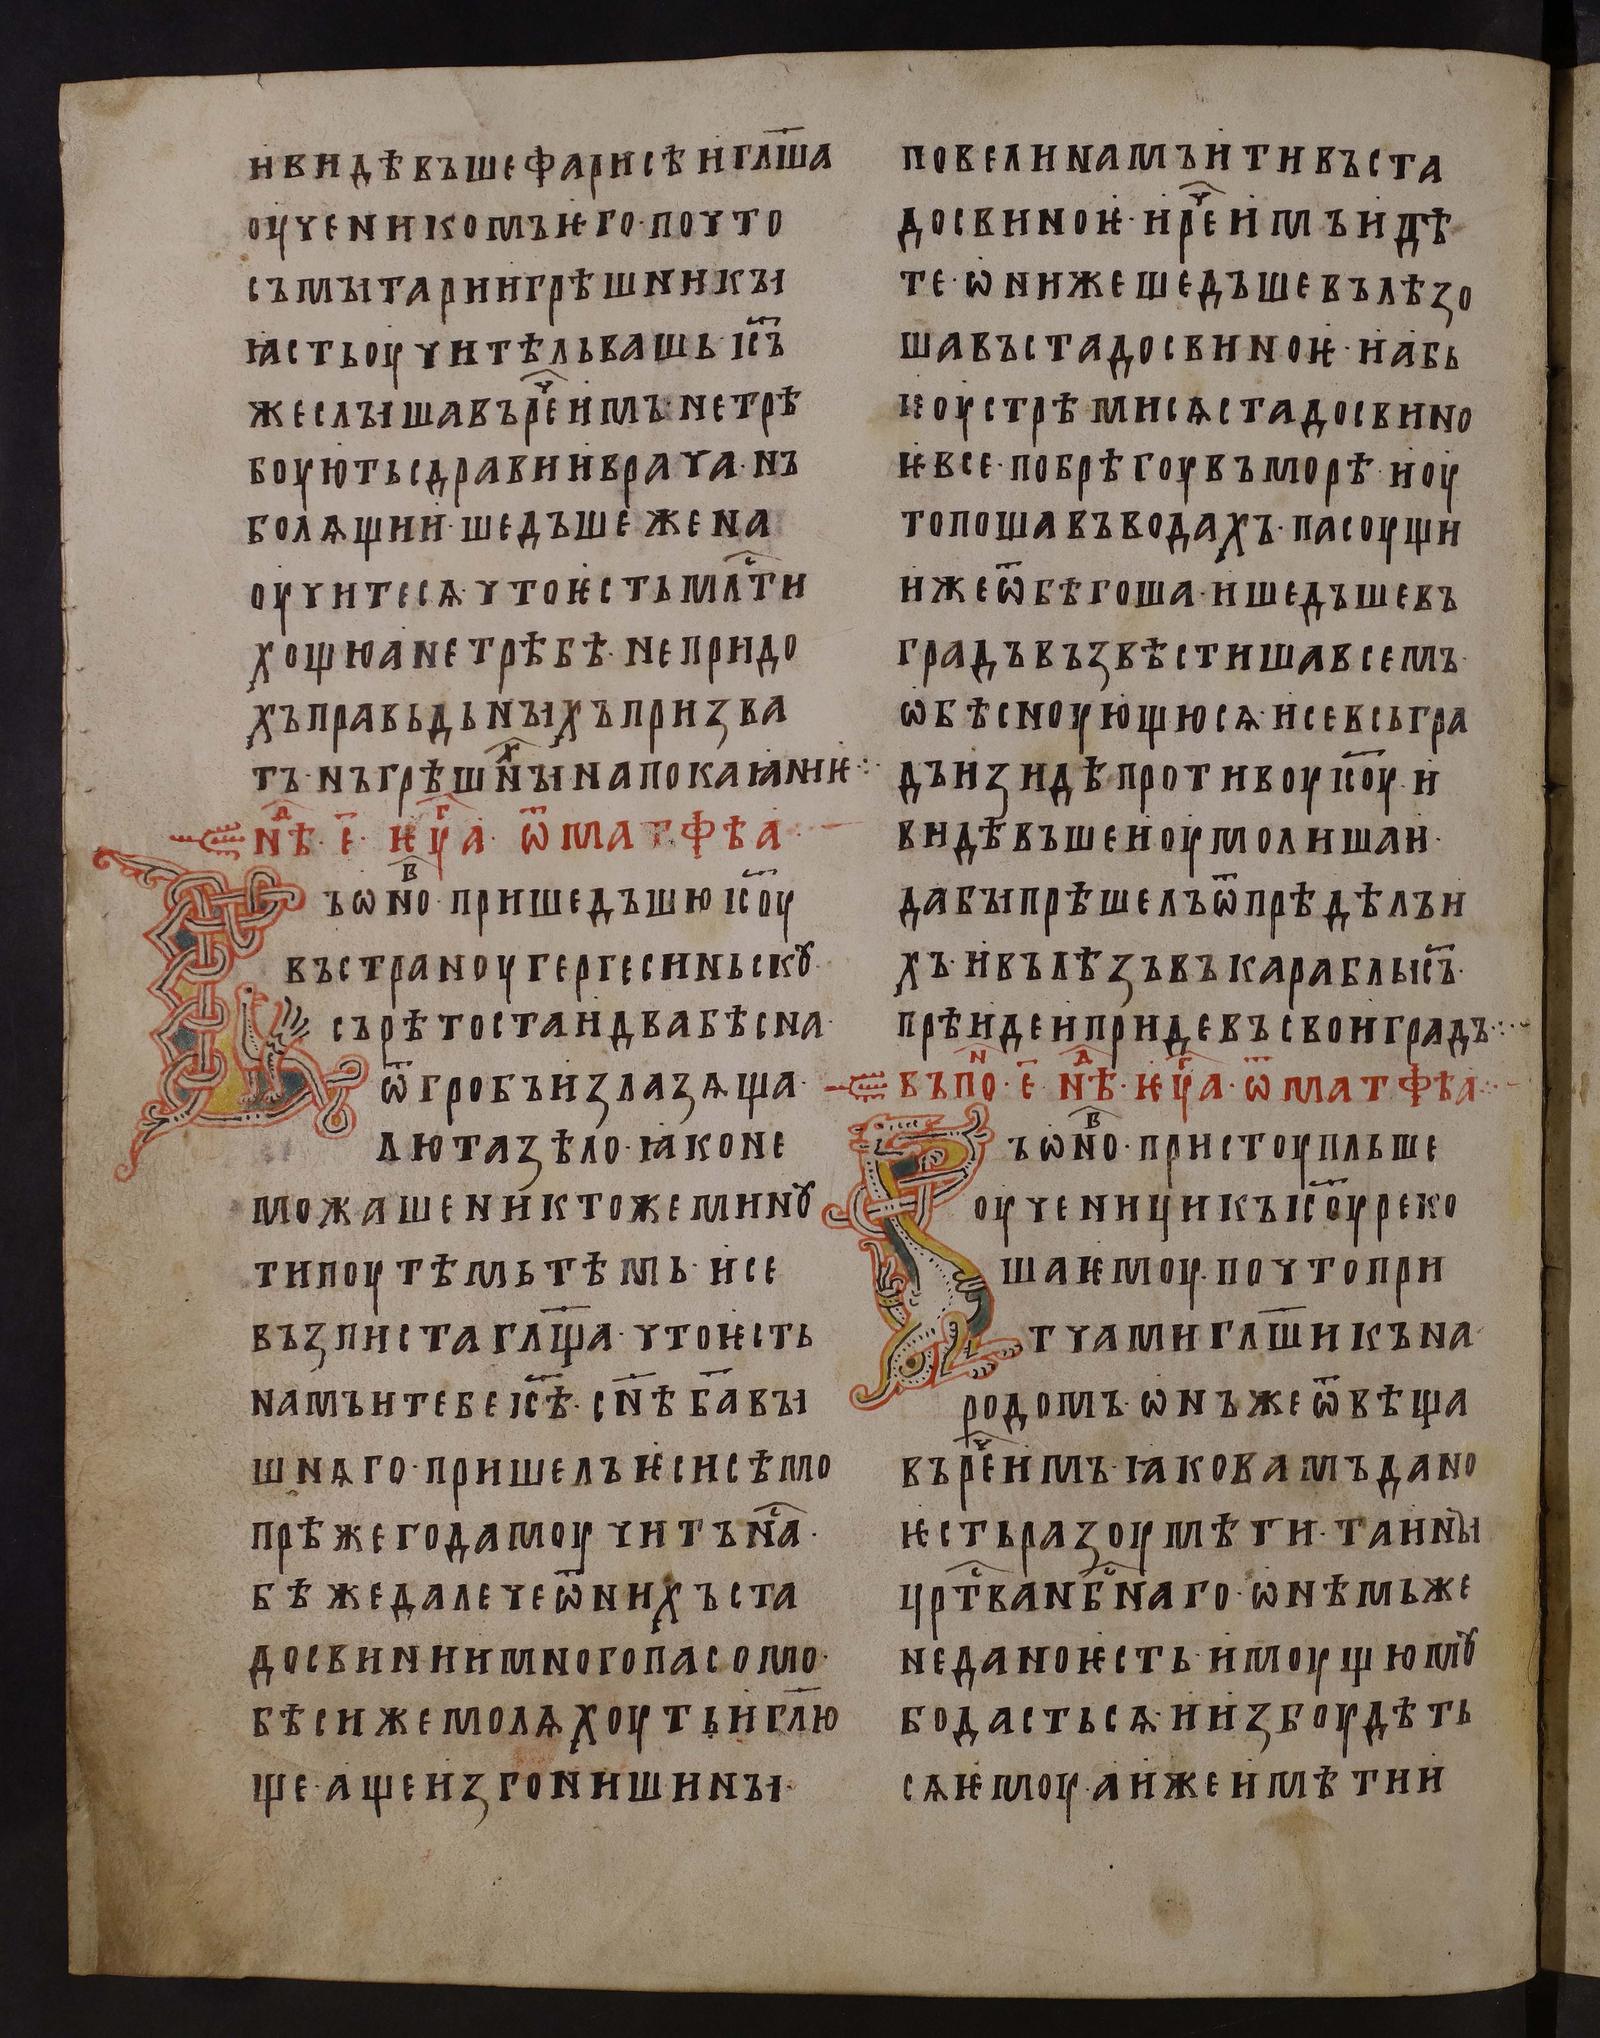 и видѣвъше фарисѣи гл҃ша
оученикомъ ѥго· почто
съ мытари и грѣшникы
ꙗсть оучитель вашь· іс҃ъ
же слышавъ реч҇ имъ· не трѣ
боують съдрави врача· нъ
болѧщии· шедъше же на
оучитесѧ· что ѥсть млс҇ти
хощю а не трѣбѣ· не придо
хъ правьдьныхъ призва
тъ· нъ грѣшн҇ꙑ на покаꙗниѥ·:·
нд҇ѣ· е҃· ѥуг҇а· ѿ матфѣа
Въ ѡнв҇о· пришедъшю іс҃оу
въ страноу гергесиньскꙋ·
сърѣтоста и два бѣсна·
ѿ гробъ излазѧща·
люта зѣло· ꙗко не
можаше никтоже минꙋ
ти поутѣмь тѣмь· и се
възписта гл҃ща· что ѥсть
намъ и тебе іс҃ѣ· сн҃ѣ б҃а вы
шнѧго· пришелъ ѥси сѣмо
прѣже года моучитъ нас҇·
бѣ же далече ѿ нихъ ста
до свинии много пасомо·
бѣси же молѧхоуть и гл҃ю
ще· аще изгониши ны·
повели намъ ити въ ста
до свиноѥ· и реч҇ имъ идѣ
те· ѡни же шедъше вълѣзо
ша въ стадо свиноѥ· и абь
ѥ оустрѣмисѧ стадо свино
ѥ все· по брѣгоу въ морѣ· и оу
топоша въ водахъ· пасоущи
и же ѿбѣгоша· и шедъше въ
градъ възвѣстиша всемъ·
ѡ бѣсноующюсѧ· и се всь гра
дъ изидѣ противоу іс҃оу· и
видѣвъше и оумолиша и·
да бы прѣшелъ ѿ прѣдѣлъ и
хъ· и вълѣзъ въ карабль іс҃ъ·
прѣиде и приде въ свои градъ·:·
въ пон҇· е҃· нд҇ѣ· ѥуг҇а· ѿ матфѣа·
Въ ѡнв҇о· пристоупльше
оученици къ іс҃оу реко
ша ѥмоу· почто при
тчами гл҃ши къ на
родомъ· ѡнъ же ѿвѣща
въ реч҇ имъ· ꙗко вамъ дано
ѥсть разоумѣти· таины
црс҇тва нбс҇наго· ѡнѣмь же
не дано ѥсть· имоущюмꙋ
бо дастьсѧ· и избоудѣть
сѧ ѥмоу· а иже имѣти и